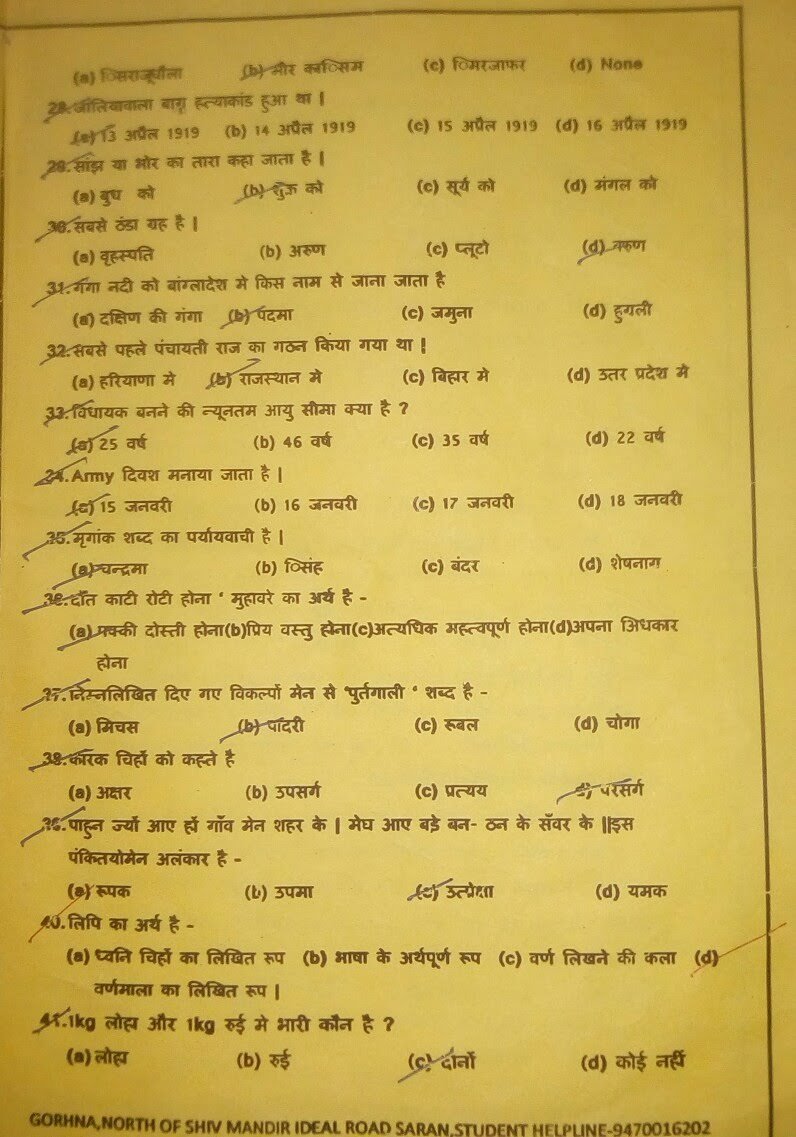 (a) सिराजूधौला (b) मीर कासिम (c) मिरजाफर (d) None
28.जालियावाला बाग़ हत्याकांड हुआ था |
(a) 13 अप्रैल 1919 (b) 14 अप्रैल 1919 (c) 15 अप्रैल 1919 (d) 16 अप्रैल 1919
29.सांझ या भोर का तारा कहा जाता है |
(a) बुध को (b) शुक्र को (c) सूर्य को (d) मंगल को
30.सबसे ठंडा ग्रह है |
(a) वृहस्पति (b) अरुण (c) प्लूटो (d) वरुण
31.गंगा नदी को बांग्लादेश मे किस नाम से जाना जाता है
(a) दक्षिण की गंगा (b) पदमा (c) जमुना (d) हुगली
32.सबसे पहले पंचायती राज का गठन किया गया था |
(a) हरियाणा मे (b) राजस्थान मे (c) बिहार मे (d) उतर प्रदेश मे
33.विधायक बनने की न्यूनतम आयु सीमा क्या है ?
(a) 25 वर्ष (b) 46 वर्ष (c) 35 वर्ष (d) 22 वर्ष
34.Army दिवश मनाया जाता है |
(a) 15 जनवरी (b) 16 जनवरी (c) 17 जनवरी (d) 18 जनवरी
35.मृगांक शब्द का पर्यायवाची है |
(a) चन्द्रमा (b) सिंह (c) बंदर (d) शेषनाग
36.दाँत काटी रोटी होना ‘ मुहावरे का अर्थ है -
(a) पक्की दोस्ती होना(b)प्रिय वस्तु होना(c)अत्यधिक महत्वपूर्ण होना(d)अपना अिधकार
होना
37.निम्नलिखित दिए गए विकल्पों मेन से ‘पुर्तगाली ‘ शब्द है -
(a) मिचस (b) पादरी (c) रूबल (d) चोगा
38.कारक चिर्हो को कहते है
(a) अक्षर (b) उपसर्ग (c) प्रत्यय (d) परसर्ग
39.पाहुन ज्यों आए हों गाँव मेन शहर के | मेघ आए बड़े बन- ठन के सँवर के ||इस
पंकितयोमेन अलंकार है -
(a) रूपक (b) उपमा (c) उत्प्रेक्षा (d) यमक
40.लिपि का अर्थ है -
(a) ध्वनि चिर्हो का लिखित रूप (b) भाषा के अर्थपूर्ण रूप (c) वर्ण लिखने की कला (d)
वर्णमाला का लिखित रूप |
41.1kg लोहा और 1kg रुई मे भारी कौन है ?
(a) लोहा (b) रुई (c) दोनों (d) कोई नहीं
GORHNA,NORTH OF SHIV MANDIR IDEAL ROAD SARAN,STUDENT HELPLINE-9470016202